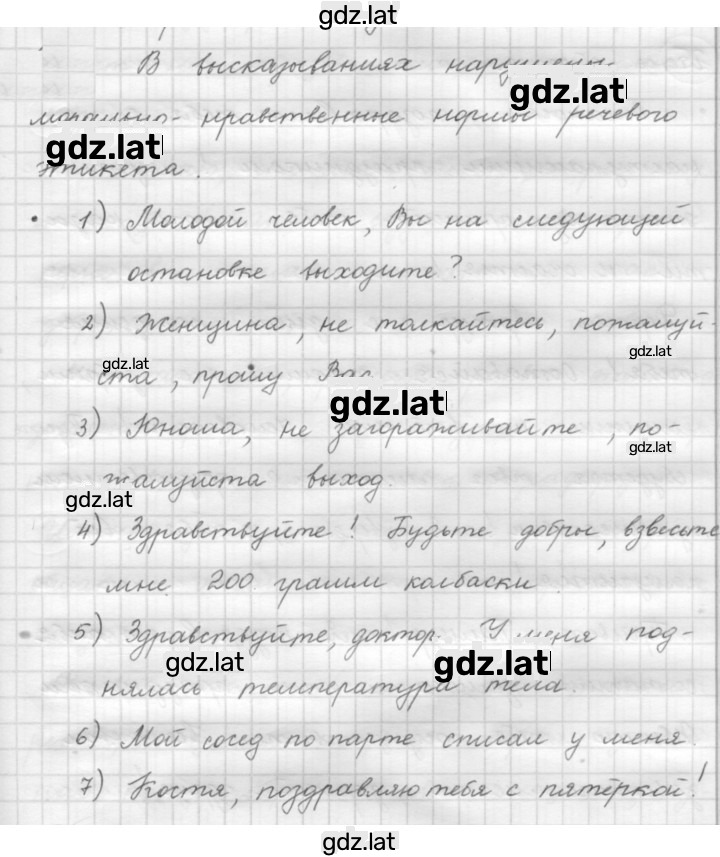 gdz.lat
В высказываниях
gdz.lat
нравственные нормы речевого
gdz.lat
этикета.
1) Молодой человек, Вы на следующей
остановке выходите?
2) Женщина, не толкайтесь, пожалуй-
gdz.lat
gdz.lat
ста, прошу
gdz.lat
3) Юноша, не загораживайте, по-
gdz.lat
жалуйста выход.
gdz.lat
4) Здравствуйте! Будьте добры, взвесьте
мне 200 грамм колбаски
5) Здравствуйте, доктор. У меня под-
gdz.lat
gdz.lat
нялась температура тела.
6) Мой сосед по парте списал у меня.
7) Костя, поздравляю тебя с пятёркой!
gdz.lat